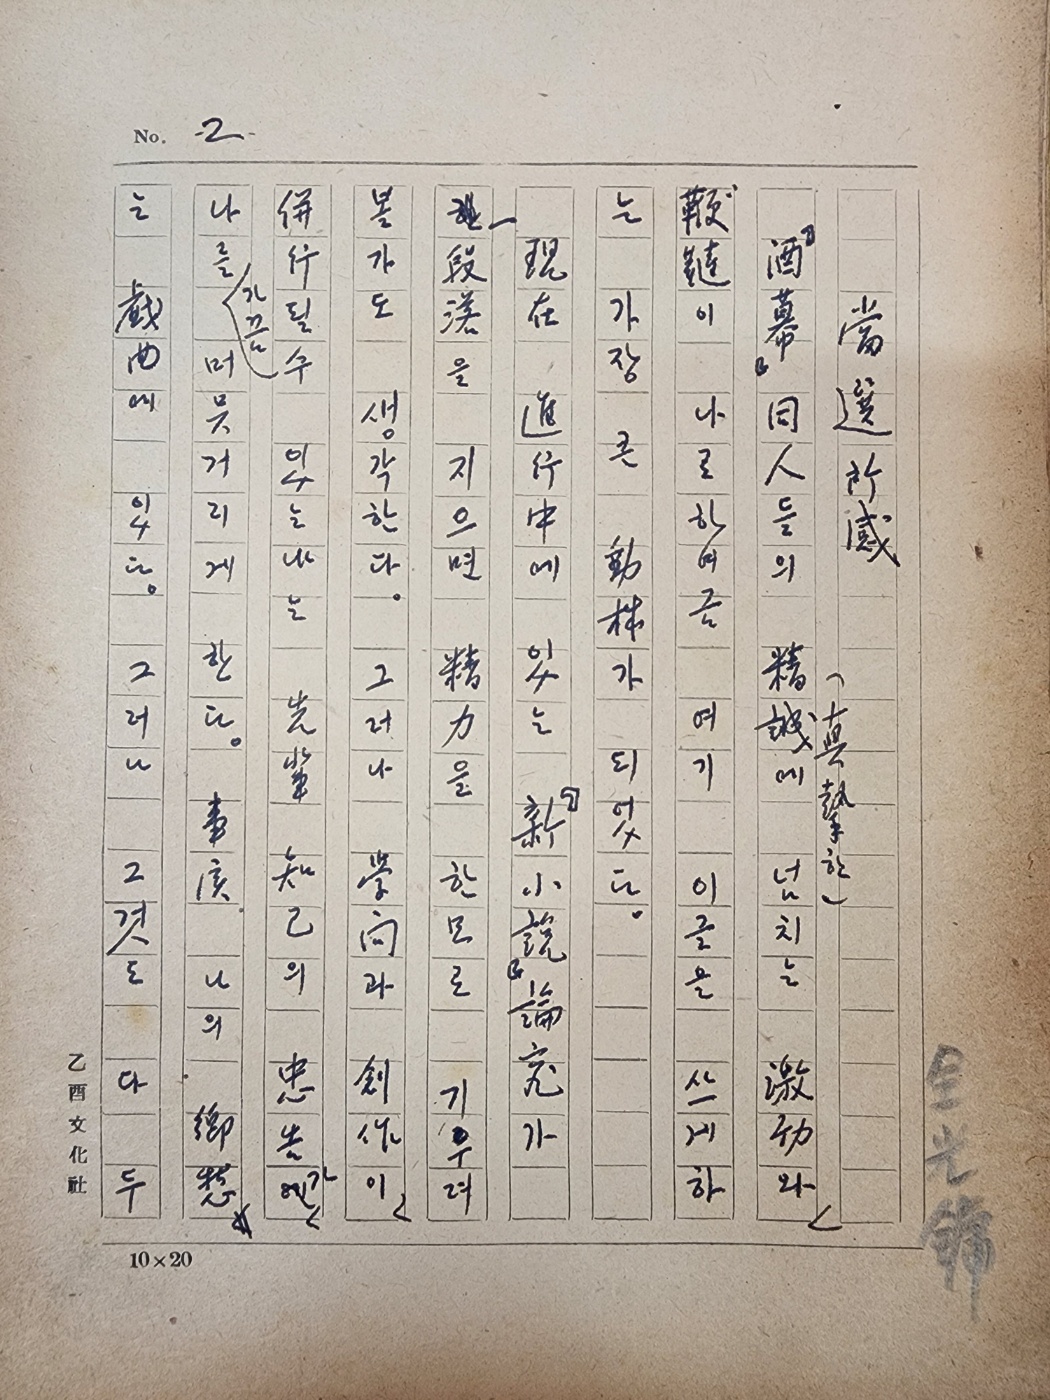 No. -2-
當選所感
『酒幕』同人들의 精誠에 넘치는 激励와
(真摯한)
鞭韃이 나로하여금 여기 이글을 쓰게하
는 가장 큰 動機가 되었다.
現在 進行中에 있는 『新小說』論究가
一段落을 지으면 精力을 한모로 기우려
볼가도 생각한다. 그러나 學问과 創作이
併行될수 있는나는 先輩 知己의 忠告가
나를 머뭇거리게 한다. 事实 나의 鄉愁
가끔
는 戱曲에 있다. 그러나 그것도 다 두
全光鏞
乙酉文化社
10×20